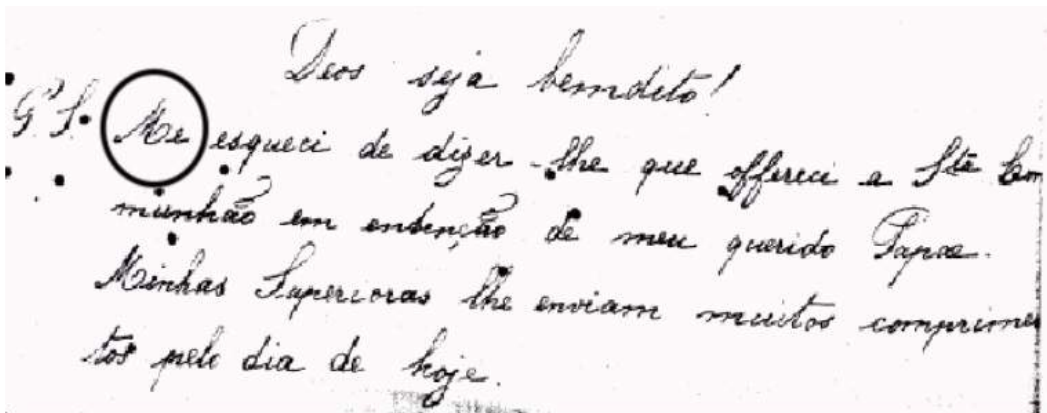 Deos seja bemdito!
P. S. Me esqueci de dizer-lhe que offereci a Sta Com
munhão em entenção de meu querido Papae.
Minhas Superioras lhe enviam muitos comprimen
tos pelo dia de hoje.